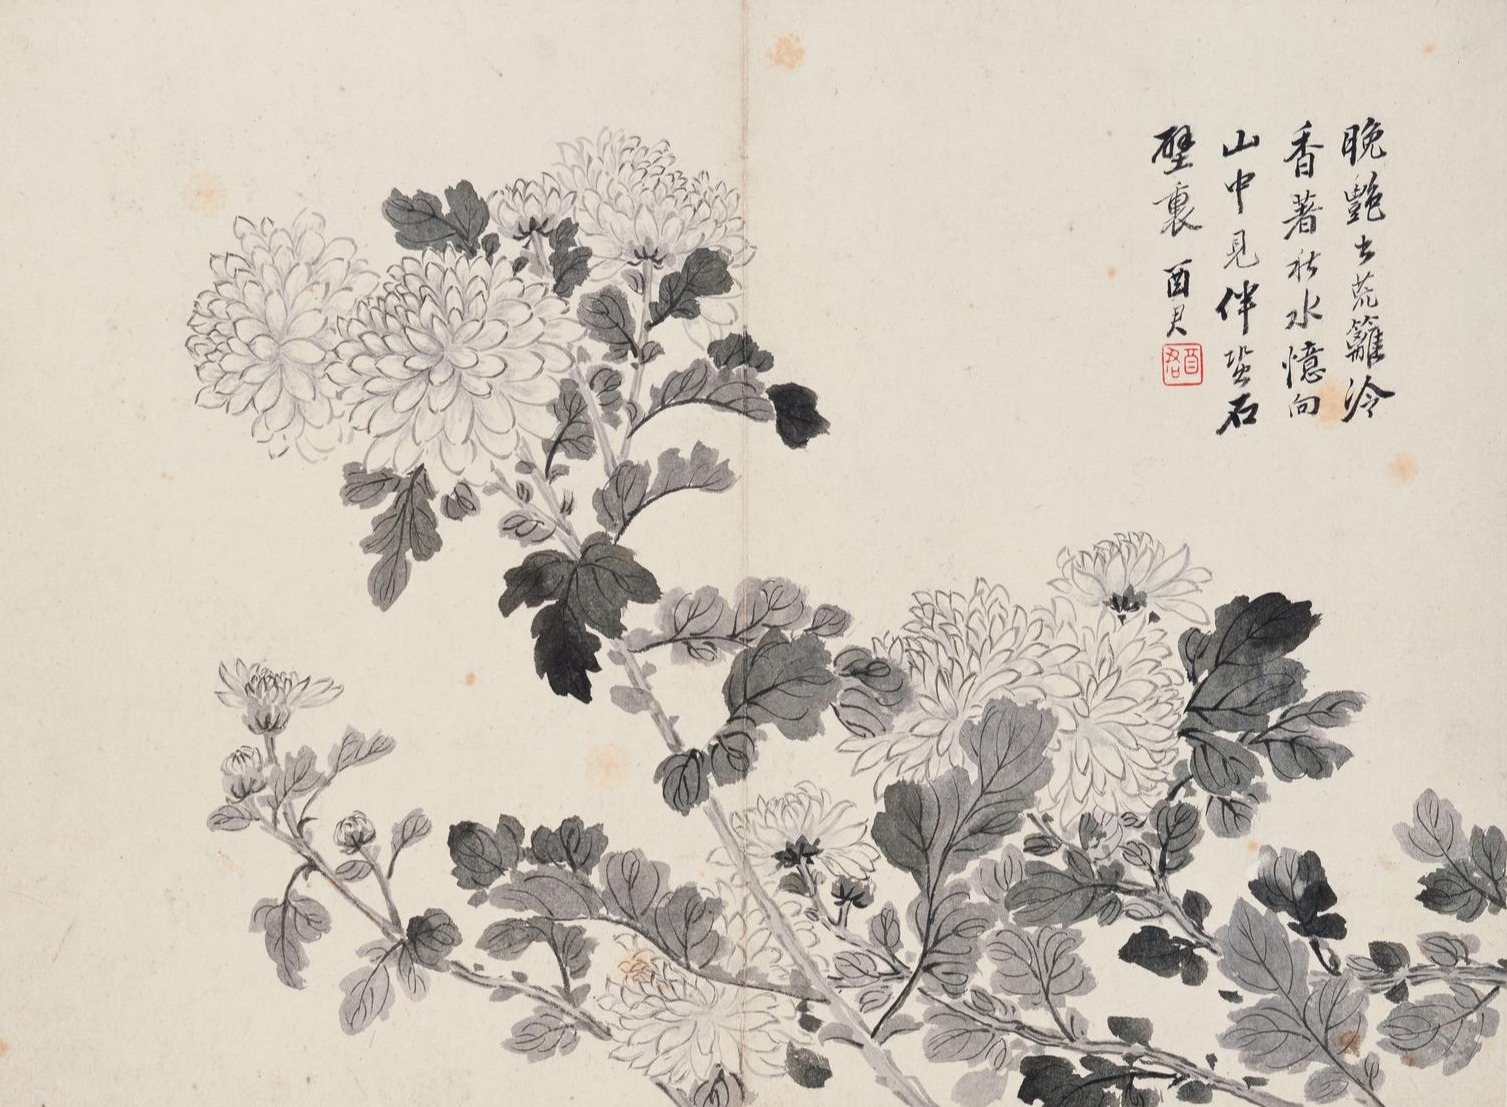 晚艷出荒籬冷
香著秋水憶向
山中見伴蛩石
壁裏 酉君
酉君